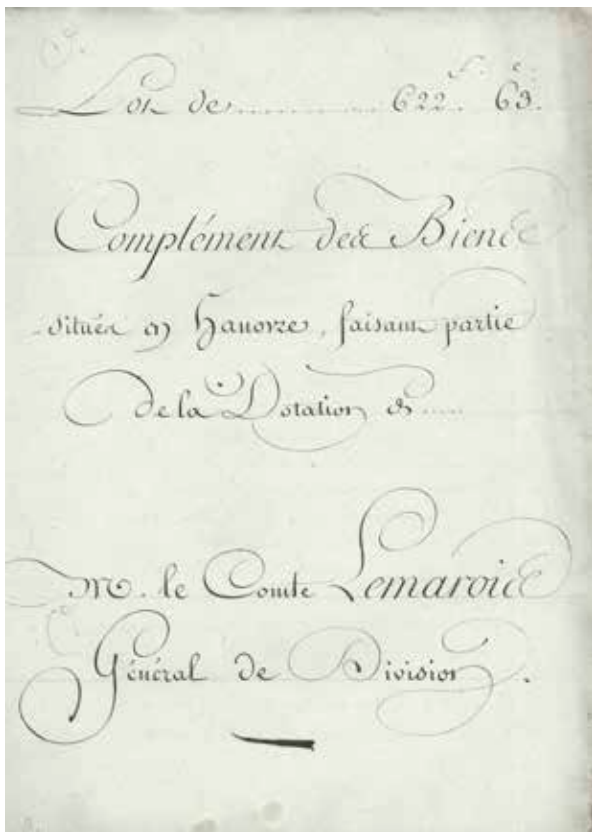 Lot de............ 622.f 63.c
Complément des Biens
situés en Hanovre, faisant partie
de la Dotation de.....
M. le Comte Lemarois
Général de Division.